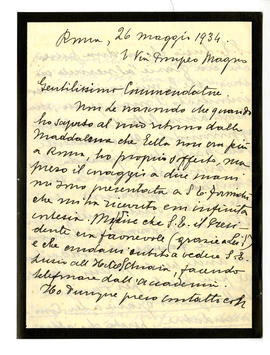 Roma, 26 maggio 1934.
2 Via Pompeo Magno
Gentilissimo Commendatore.
Non Le nascondo che quando
ho saputo al mio ritorno dalla
Maddalena che Ella non era più
a Roma, ho proprio sofferto, ma
preso il coraggio a due mani
mi sono presentata a S.E. Formichi
che mi ha ricevuta con infinita
cortesia. Mi disse che S.E. il Presi-
dente era favorevole (grazie a Lei!)
e che andassi subito a vedere S.E.
all'Hotel, facendo
telefonare dall'Accademia.
Ho dunque preso contatti con